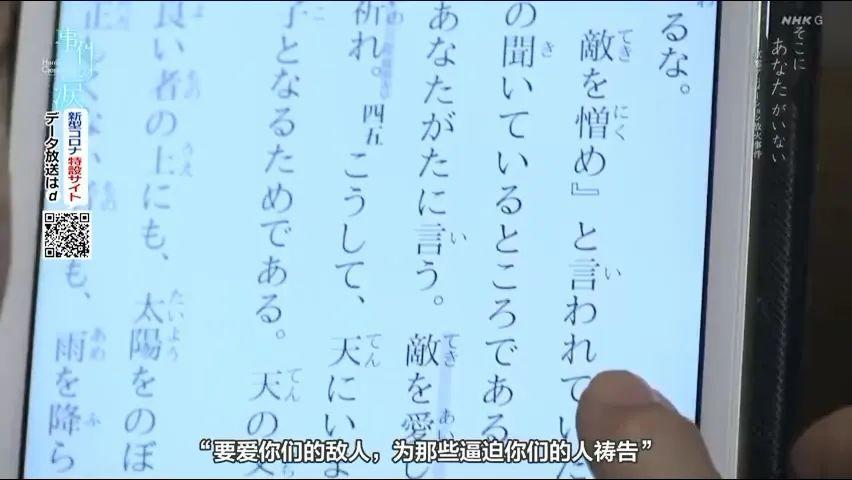 NHK G
そこに
あなたがいない
京都アニメーション放火事件
るな。
敵を憎め』と言われていた
の聞いているところである
あなたがたに言う。敵を愛し
祈れ。四五こうして、天にいま
子となるためである。天の
良い者の上にも、太陽をのぼ
も、雨を降ら
事件の涙
新型コロナ 特設サイト
データ放送はd
“要爱你们的敌人，为那些逼迫你们的人祷告”